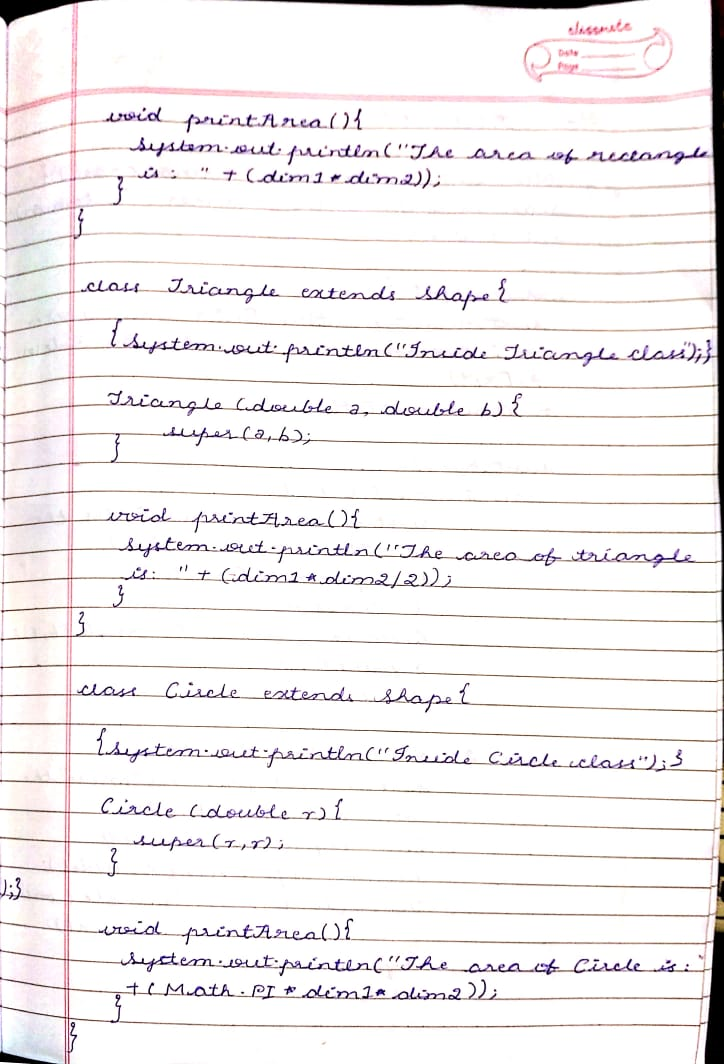 classmate
Date
Page
void printArea(){
System.out.println("The area of rectangle
is: " + (dim1 * dim2));
}
}
class Triangle extends Shape{
{System.out.println("Inside Triangle class");}
Triangle (double a, double b){
super(a,b);
}
void printArea(){
System.out.println("The area of triangle
is: " + (dim1 * dim2/2));
}
}
class Circle extends Shape{
{System.out.println("Inside Circle class");}
Circle (double r){
super(r,r);
}
);}
void printArea(){
System.out.println("The area of Circle is: "
+ (Math.PI * dim1 * dim2));
}
}